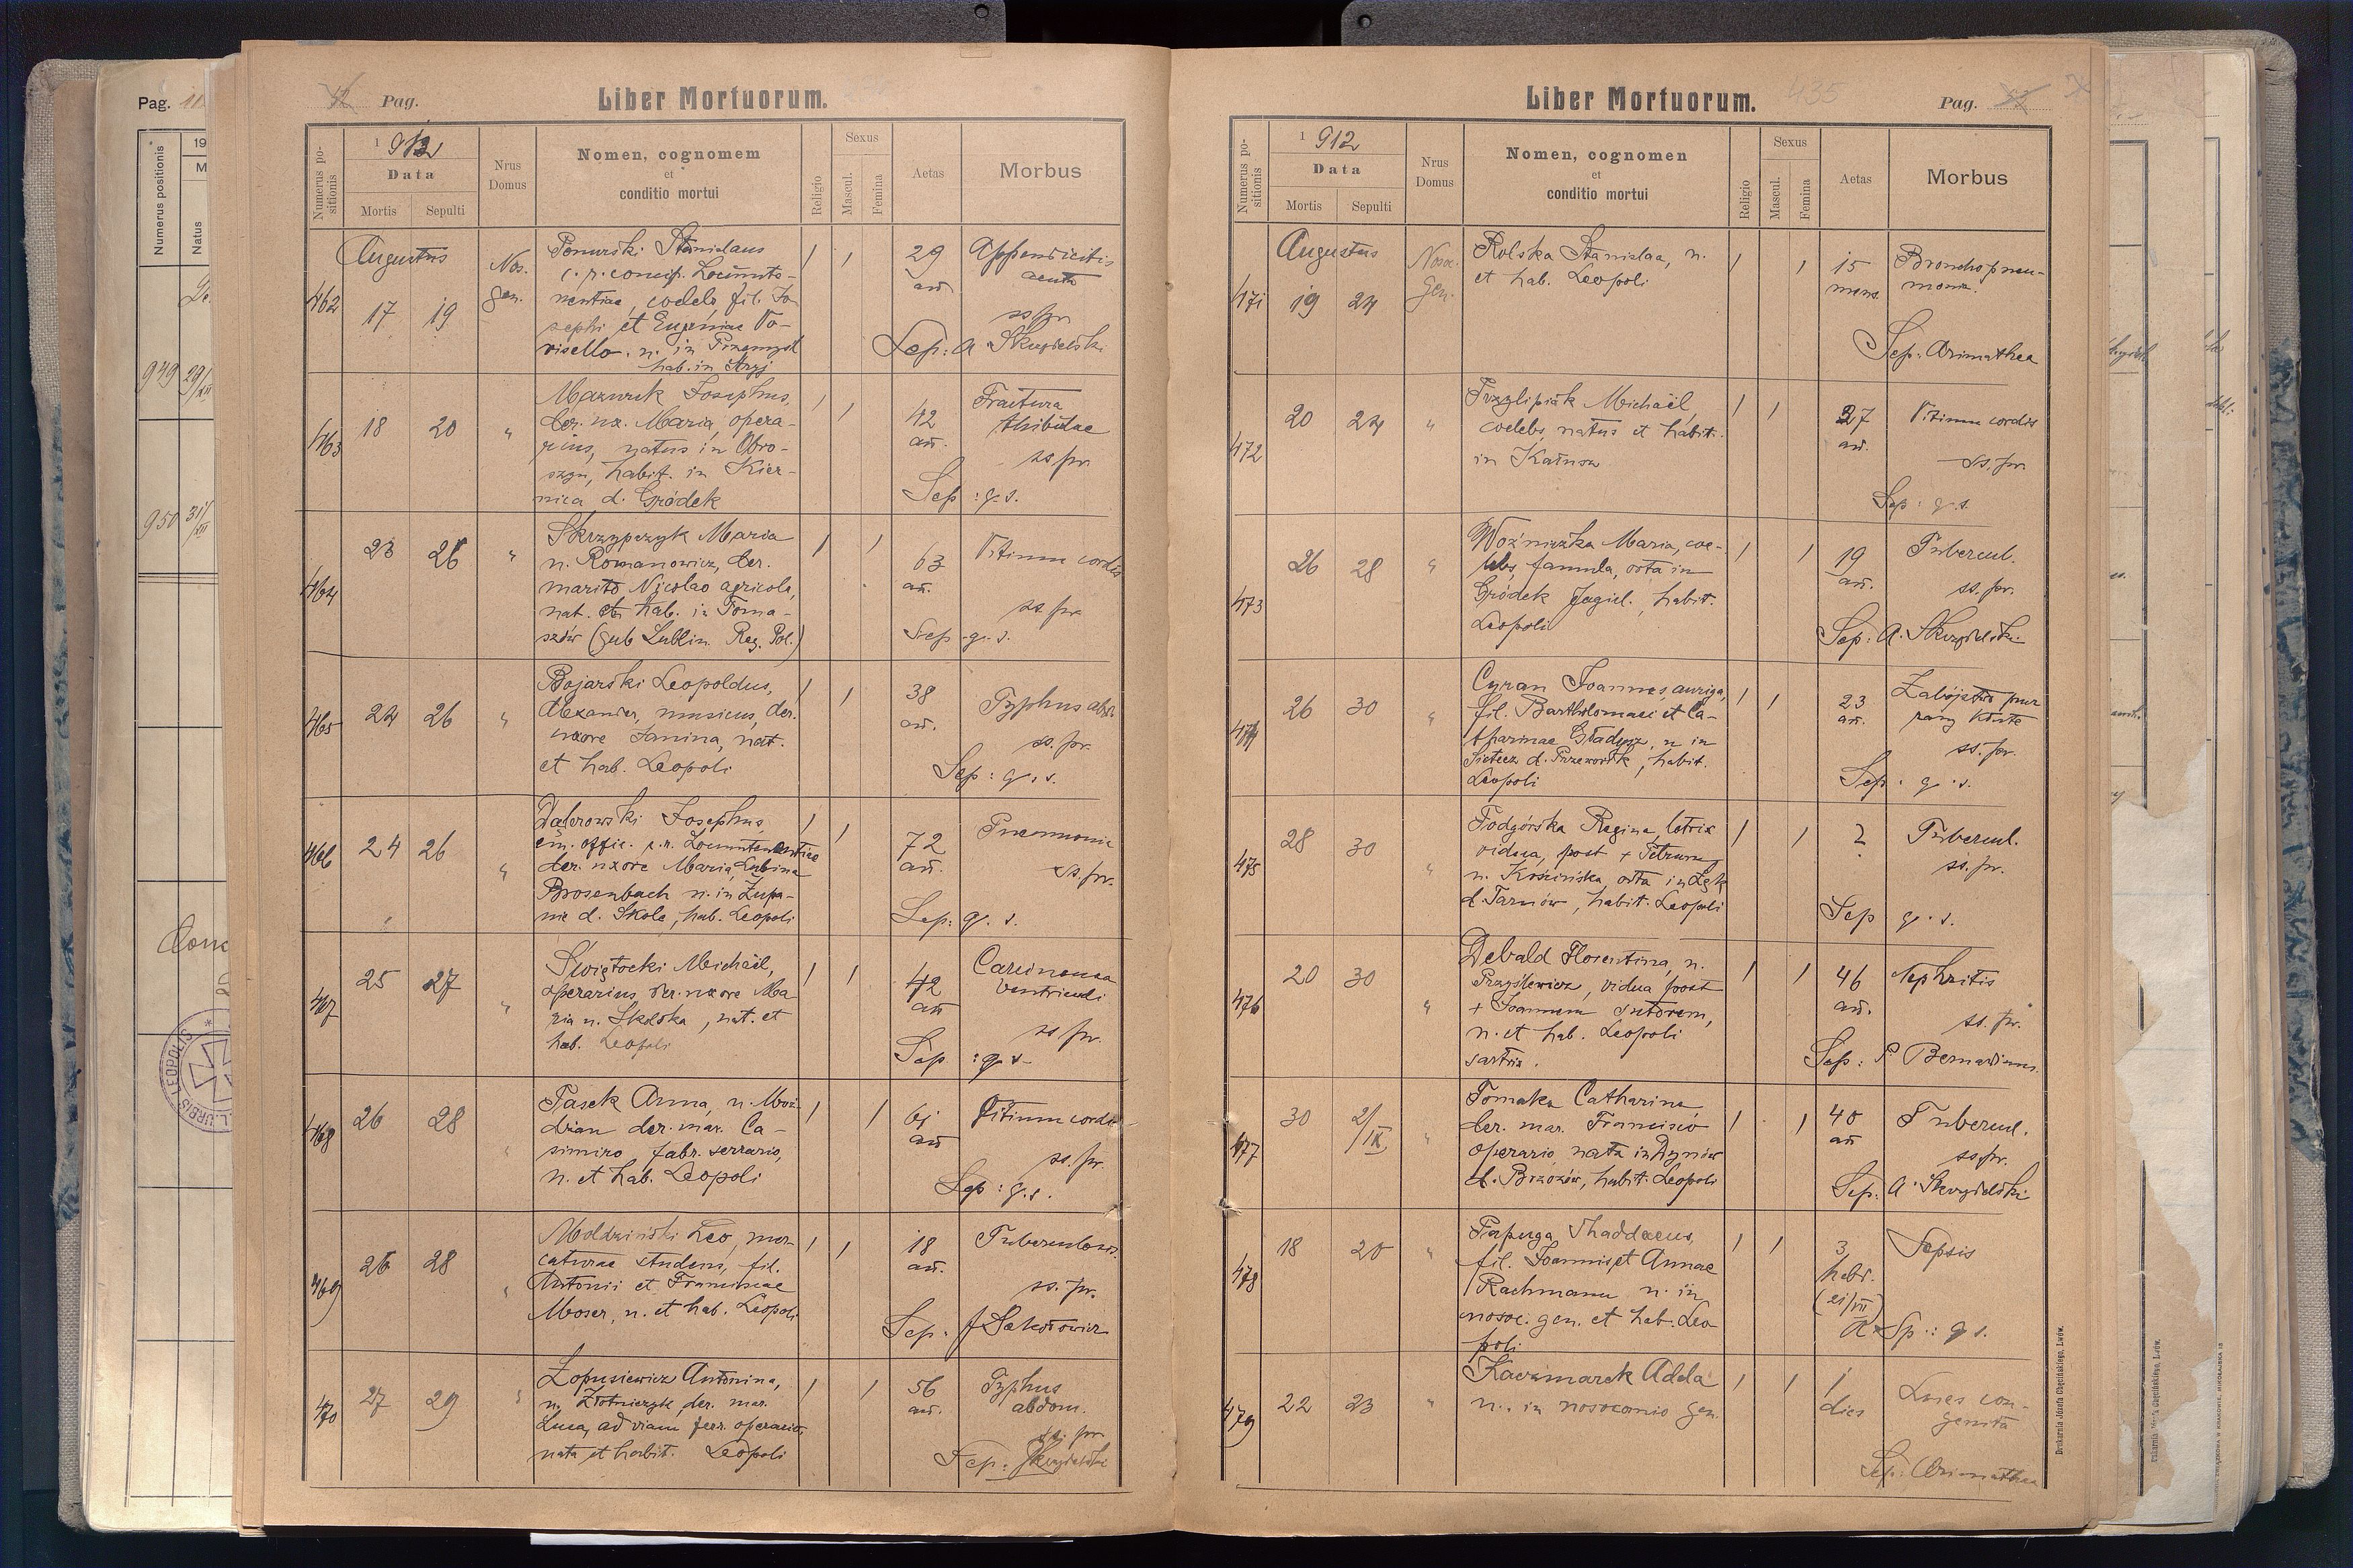 Pag. 11
Numerus positionis
19
M
Natus
949 29/XII
950 31/XII
L. URBIS LEOPOLIS *
Pag.
Liber Mortuorum.
Numerus positionis
1912
Data
Mortis
Sepulti
Nrus Domus
Nomen, cognomem
et
conditio mortui
Religio
Sexus
Mascul.
Femina
Aetas
Morbus
Augustus
462
17 19
Nos. gen.
Ponurski Stanislaus
c. r. concip. Locumte-
nentiae, coelebs, fil. Jo
sephi et Eugeniae To-
risello, n. in Przemyśl
hab. in Stryj
29 an̄
Appendicitis
acuta
ss. pr
Sep: A Skrzydelski
463
18 20 "
Mazurek Josephus,
der. ux. Maria, opera-
rius, natus in Obro-
szyn, habit. in Kier-
nica d. Gródek
42 an̄.
Fractura
thibulae
ss. pr
Sep: g. s.
464
23 26 "
Skrzypczyk Maria
n. Romanowicz, der.
marito Nicolao agricola,
nat. et hab. in Toma-
szów (gub Lublin. Reg. Pol.)
63 an̄.
Vitium cordis
ss. pr
Sep. g. s.
465
24 26 "
Bojarski Leopoldus,
Alexander, musicus, der.
uxore Janina, nat.
et hab. Leopoli
38 an̄.
Typhus abd
ss. pr.
Sep: g. s.
466
24 26 "
Dąbrowski Josephus,
em. offic. c. r. Locumtenentiae
der. uxore Maria, Lubina
Brosenbach n. in Żupa-
nie d. Skole, hab. Leopoli
72 an̄.
Pneumonia
ss. pr.
Sep: g. s.
467
25 27 "
Świętocki Michaël,
operarius, der. uxore Ma
ria n. Skolska, nat. et
hab. Leopoli
42 an̄
Carcinoma
ventriculi
ss pr.
Sep: g. s.
468
26 28 "
Pasek Anna, n. Moź
drian der. mar. Ca-
simiro fabr. serrario,
n. et hab. Leopoli
61 an̄
Vitium cordis
ss. pr.
Sep: g. s.
469
26 28 "
Moldziński Leo, mer-
caturae studens, fil.
Antonii et Franciscae
Moser, n. et hab. Leopoli
18 an̄.
Tuberculosis.
ss. pr.
Sep. J Sokołowicz
470
27 29 "
Łopusiewicz Antonina,
n. Złotniczyk, der. mar.
Luca, ad viam ferr. operario,
nata et habit. Leopoli
56 an̄.
Typhus
abdom.
ss. pr.
Sep: Skrzydelski
Liber Mortuorum.
435
Pag.
Numerus positionis
1912
Data
Mortis
Sepulti
Nrus Domus
Nomen, cognomen
et
conditio mortui
Religio
Sexus
Mascul.
Femina
Aetas
Morbus
Augustus
471
19 24
Nosoc. Gen.
Rolska Stanislaa, n.
et hab. Leopoli
15 mens.
Bronchopneu-
monia.
Sep: Arimathea
472
20 24 "
Przylipiak Michaël,
coelebs, natus et habit.
in Kałusz
37 an̄.
Vitium cordis
ss. pr.
Sep: g. s.
473
26 28 "
Woźniczka Maria, coe-
lebs, famula, orta in
Gródek Jagiel., habit.
Leopoli
19 an̄.
Tubercul.
ss. pr.
Sep: A. Skrzydelski
474
26 30 "
Cyran Joannes, auriga,
fil. Bartholomaei et Ca-
tharinae Gładysz, n. in
Sietecz d. Przeworsk, habit.
Leopoli
23 an̄.
Zabójstwo przez
rany kłute
ss. pr.
Sep. g. s.
475
28 30 "
Podgórska Regina, lotrix
vidua, post + Petrum,
n. Kosińska orta in Łęk
d. Tarnów, habit. Leopoli
?
Tubercul.
ss. pr.
Sep g. s.
476
20 30 "
Debald Florentina, n.
Przyślewicz, vidua post
+ Joannem sutorem,
n. et hab. Leopoli
sartrix.
46 an̄.
Nephritis
ss. pr.
Sep: P. Bernardinus.
477
30 2/IX "
Tomaka Catharina,
der. mar. Francisco
operario, nata in Dynów
d. Brzozów, habit. Leopoli
40 an̄
Tubercul.
ss. pr.
Sep. A. Skrzydelski
478
18 20 "
Papuga Thaddaeus,
fil. Joannis, et Annae
Rachmann n. in
nosoc. gen. et hab. Leo
poli
3 hebd.
(21/VII)
Sepsis
Sp.: g s.
479
22 23 "
Kaczmarek Adela
n. in nosocomio gen.
1 dies
Lues con-
genita
Sep: Arimathea
Drukarnia Józefa Chęcińskiego, Lwów.